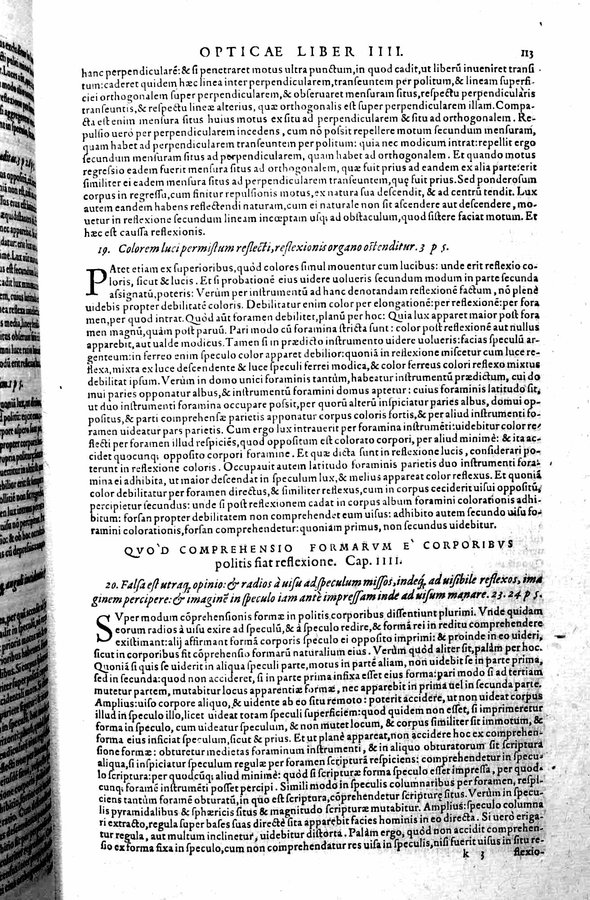 OPTICAE LIBER IIII. 113
hanc perpendicularẽ: & si penetraret motus ultra punctum, in quod cadit, ut liberũ inueniret transi
tum: caderet quidem hæc linea inter perpendicularem, transeuntem per politum, & lineam superfi-
ciei orthogonalem super perpendicularem, & obseruaret mensuram situs, respectu perpendicularis
transeuntis, & respectu lineæ alterius, quæ orthogonalis est super perpendicularem illam. Compa-
cta est enim mensura situs huius motus ex situ ad perpendicularem & situ ad orthogonalem. Re-
pulsio uerò per perpendicularem incedens, cum nõ possit repellere motum secundum mensuram,
quam habet ad perpendicularem transeuntem per politum: quia nec modicum intrat: repellit ergo
secundum mensuram situs ad perpendicularem, quam habet ad orthogonalem. Et quando motus
regressio eadem fuerit mensura situs ad orthogonalem, quæ fuit prius ad eandem ex alia parte: erit
similiter ei eadem mensura situs ad perpendicularem transeuntem, quę fuit prius. Sed ponderosum
corpus in regressu, cum finitur repulsionis motus, ex natura sua descendit, & ad centrũ tendit. Lux
autem eandem habens reflectendi naturam, cum ei naturale non sit ascendere aut descendere, mo-
uetur in reflexione secundum lineam incœptam usq; ad obstaculum, quod sistere faciat motum. Et
hæc est caussa reflexionis.
19. Colorem luci permistum reflecti, reflexionis organo ostenditur. 3 p 5.
PAtet etiam ex superioribus, quòd colores simul mouentur cum lucibus: unde erit reflexio co-
loris, sicut & lucis. Et si probationé eius uidere uolueris secundum modum in parte secunda
assignatũ, poteris: Verùm per instrumentũ ad hanc denotandam reflexionẽ factum, nõ plenè
uidebis propter debilitatẽ coloris. Debilitatur enim color per elongationẽ: per reflexionẽ: per fora
men, per quod intrat. Quòd aũt foramen debiliter, planũ per hoc: Quia lux apparet maior post fora
men magnũ, quàm post paruũ. Pari modo cũ foramina stricta sunt: color post reflexionẽ aut nullus
apparebit, aut ualde modicus. Tamen si in prædicto instrumento uidere uolueris: facias speculũ ar-
genteum: in ferreo enim speculo color apparet debilior: quoniã in reflexione miscetur cum luce re-
flexa, mixta ex luce descendente & luce speculi ferrei modica, & color ferreus colori reflexo mixtus
debilitat ipsum. Verùm in domo unici foraminis tantùm, habeatur instrumentũ prædictum, cui do
mui paries opponatur albus, & instrumentũ foramini domus aptetur: cuius foraminis latitudo sit,
ut duo instrumenti foramina occupare possit, per quorũ alterũ inspiciatur paries albus, domui op-
positus, & parti comprehensæ parietis apponatur corpus coloris fortis, & per aliud instrumenti fo-
ramen uideatur pars parietis. Cum ergo lux intrauerit per foramina instrumẽti: uidebitur color re-
flecti per foramen illud respiciẽs, quod oppositum est colorato corpori, per aliud minimè: & ita ac-
cidet quocunq; opposito corpori foramine. Et quæ dicta sunt in reflexione lucis, considerari po-
terunt in reflexione coloris. Occupauit autem latitudo foraminis parietis duo instrumenti fora-
mina ei adhibita, ut maior descendat in speculum lux, & melius appareat color reflexus. Et quoniã
color debilitatur per foramen directus, & similiter reflexus, cum in corpus ceciderit uisui oppositũ,
percipietur secundus: unde si post reflexionem cadat in corpus album foramini colorationis adhi-
bitum: forsan propter debilitatem non comprehendet eum uisus: adhibito autem secundo uisu fo-
ramini colorationis, forsan comprehendetur: quoniam primus, non secundus uidebitur.
QVOD COMPREHENSIO FORMARVM E' CORPORIBVS
politis fiat reflexione. Cap. IIII.
20. Falsa est utraq, opinio: & radios à uisu ad speculum missos, indeq, ad uisibile reflexos, ima
ginem percipere: & imaginẽ in speculo iam antè impressam inde ad uisum manare. 23. 24 p 5.
SVper modum cõprehensionis formæ in politis corporibus dissentiunt plurimi. Vnde quidam
eorum radios à uisu exire ad speculũ, & à speculo redire, & formã rei in reditu comprehendere
existimant: alij affirmant formã corporis speculo ei opposito imprimi: & proinde in eo uideri,
sicut in corporibus fit cõprehensio formarũ naturalium eius. Verùm quòd aliter sit, palàm per hoc.
Quoniã si quis se uiderit in aliqua speculi parte, motus in partẽ aliam, non uidebit se in parte prima,
sed in secunda: quod non accideret, si in parte prima infixa esset eius forma: pari modo si ad tertiam
mutetur partem, mutabitur locus apparentiæ formæ, nec apparebit in prima uel in secunda parte.
Amplius: uiso corpore aliquo, & uidente ab eo situ remoto: poterit accidere, ut non uideat corpus
illud in speculo illo, licet uideat totam speculi superficiem: quod quidem non esset, si imprimeretur
forma in speculo, cum uideatur speculum, & non mutet locum, & corpus similiter sit immotum, &
forma eius inficiat speculum, sicut & prius. Et ut planè appareat, non accidere hoc ex comprehen-
sione formæ: obturetur medietas foraminum instrumenti, & in aliquo obturatorum sit scriptura
aliqua, si inspiciatur speculum regulæ per foramen scripturã respiciens: comprehendetur in specu-
lo scriptura: per quodcũq; aliud minimè: quòd si scripturæ forma speculo esset impressa, per quod-
cunq; foramẽ instrumẽti posset percipi. Simili modo in speculis columnaribus per foramen, respi-
ciens tantùm foramẽ obturatũ, in quo est scriptura, cõprehendetur scripturæ situs. Verùm in specu-
lis pyramidalibus & sphæricis situs & magnitudo scripturæ mutabitur. Amplius: speculo columna
ri extracto, regula super bases suas directè sita apparebit facies hominis in eo directa. Si uerò eriga-
tur regula, aut multum inclinetur, uidebitur distorta. Palàm ergo, quòd non accidit comprehen-
sio ex forma fixa in speculo, cum non comprehendatur res uisa in speculis, nisi fuerit uisus in situ re-
k 3 flexio-